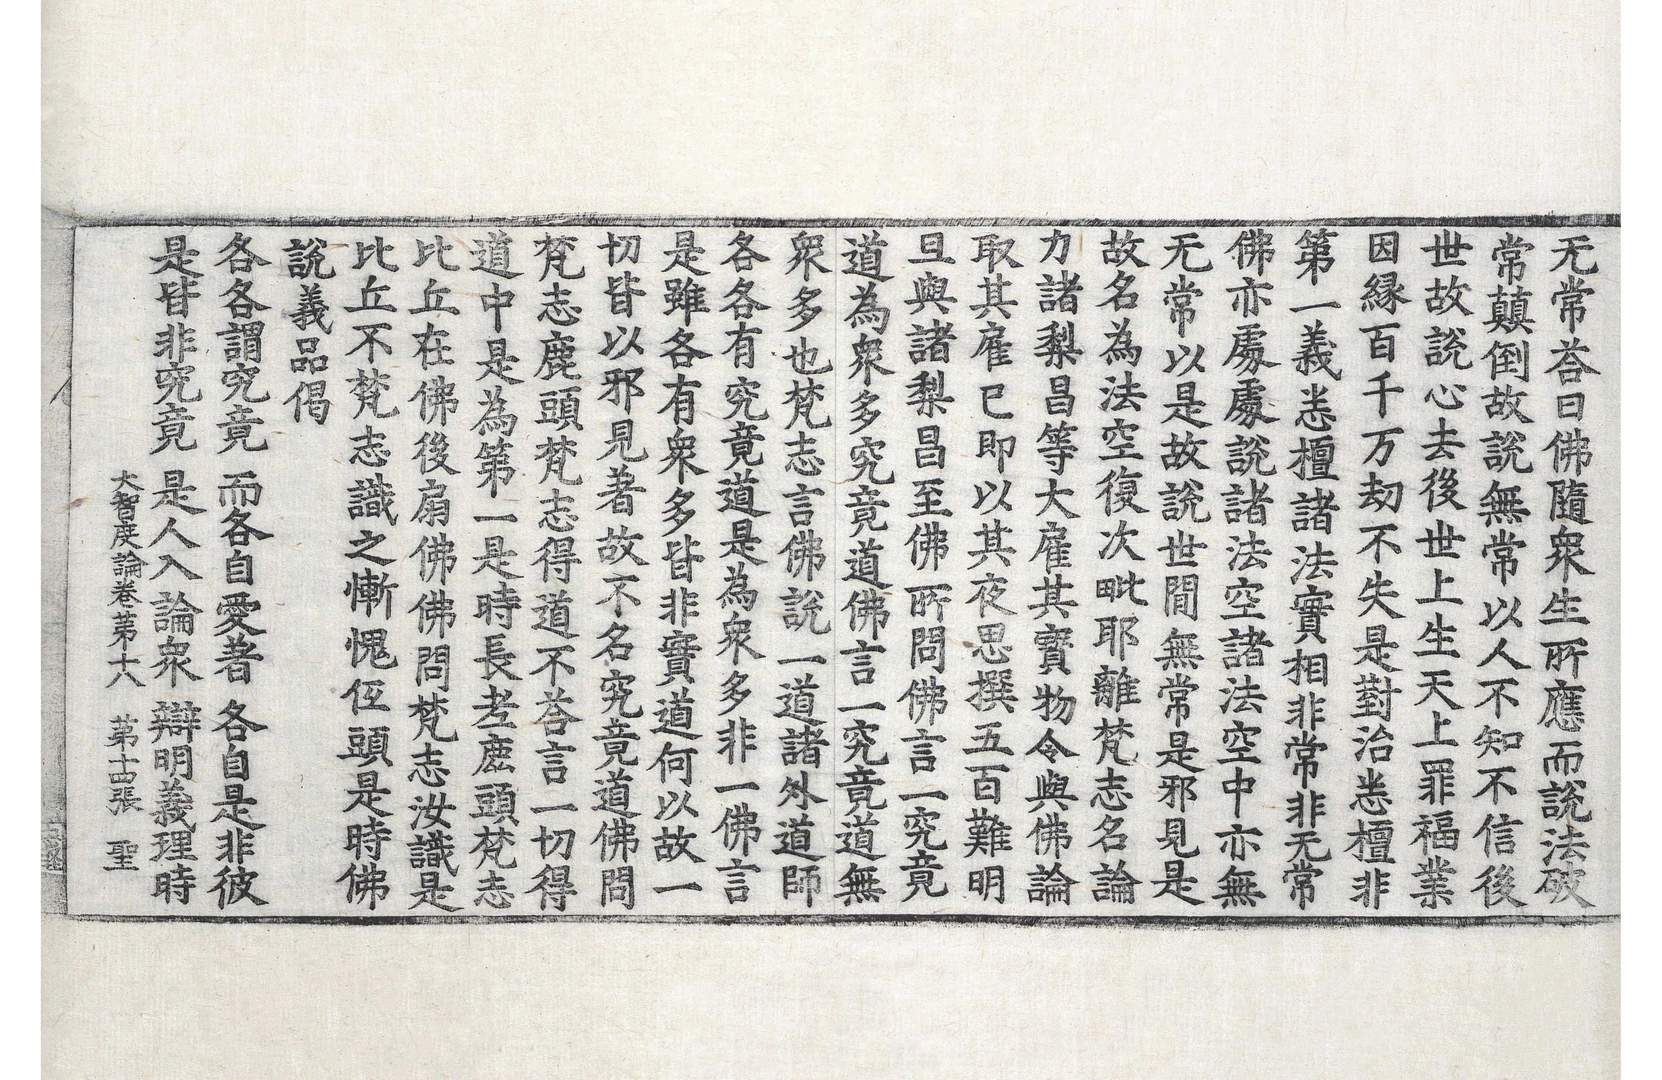 无常荅曰佛隨衆生所應而說法破
常顛倒故說無常以人不知不信後
世故說心去後世上生天上罪福業
因縁百千万劫不失是對治悉檀非
第一義悉檀諸法實相非常非无常
佛亦處處說諸法空諸法空中亦無
无常以是故說世間無常是邪見是
故名為法空復次毗耶離梵志名論
力諸梨昌等大雇其寶物令與佛論
取其雇已即以其夜思撰五百難明
旦與諸梨昌至佛所問佛言一究竟
道為衆多究竟道佛言一究竟道無
衆多也梵志言佛說一道諸外道師
各各有究竟道是為衆多非一佛言
是雖各有衆多皆非實道何以故一
切皆以邪見著故不名究竟道佛問
梵志鹿頭梵志得道不荅言一切得
道中是為第一是時長老鹿頭梵志
比丘在佛後扇佛佛問梵志汝識是
比丘不梵志識之慚愧伍頭是時佛
說義品偈
各各謂究竟 而各自愛著 各自是非彼
是皆非究竟 是人入論衆 辯明義理時
大智度論卷第十八 第十四張 聖